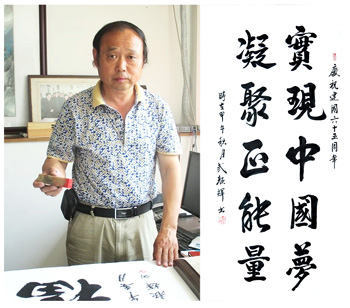 慶祝建國六十五周年
實現中國夢
凝聚正能量
甲午秋月